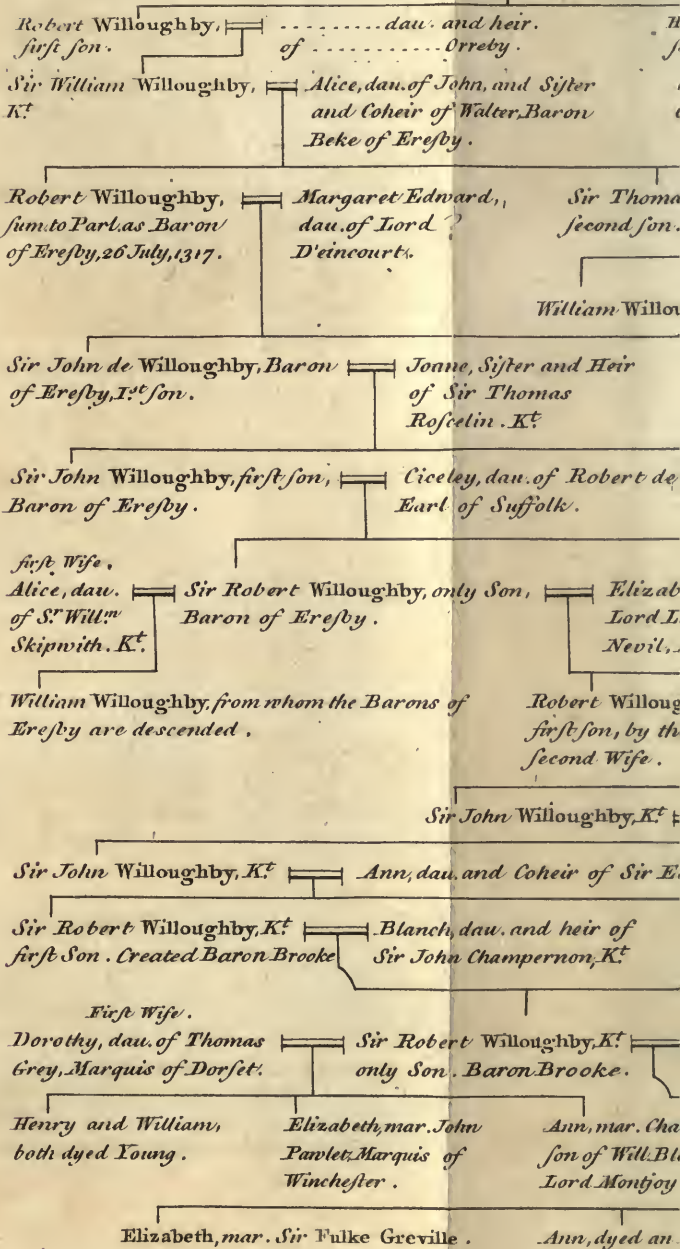 Robert Willoughby,
first son.
......... dau. and heir.
of .......... Orreby.
Sir William Willoughby,
Kt.
Alice, dau. of John, and Sister
and Coheir of Walter, Baron
Beke of Eresby.
Robert Willoughby,
sum. to Parl. as Baron
of Eresby, 26 July, 1317.
Margaret Edward,
dau. of Lord ?
D'eincourt.
Sir Thoma
second son.
William Willou
Sir John de Willoughby, Baron
of Eresby, 1st son.
Joane, Sister and Heir
of Sir Thomas
Roscelin. Kt.
Sir John Willoughby, first son,
Baron of Eresby.
Ciceley, dau. of Robert de
Earl of Suffolk.
first Wife.
Alice, dau.
of Sr. Willm
Skipwith. Kt.
Sir Robert Willoughby, only Son,
Baron of Eresby.
Elizab
Lord L
Nevil,
William Willoughby, from whom the Barons of
Eresby are descended.
Robert Willoug
first son, by th
second Wife.
Sir John Willoughby, Kt.
Sir John Willoughby, Kt.
Ann, dau. and Coheir of Sir E
Sir Robert Willoughby, Kt.
first Son. Created Baron Brooke
Blanch, dau. and heir of
Sir John Champernon, Kt.
First Wife.
Dorothy, dau. of Thomas
Grey, Marquis of Dorset.
Sir Robert Willoughby, Kt.
only Son. Baron Brooke.
Henry and William,
both dyed Young.
Elizabeth, mar. John
Pawlet, Marquis of
Winchester.
Ann, mar. Cha
son of Will. Bl
Lord Montjoy
Elizabeth, mar. Sir Fulke Greville.
Ann, dyed an